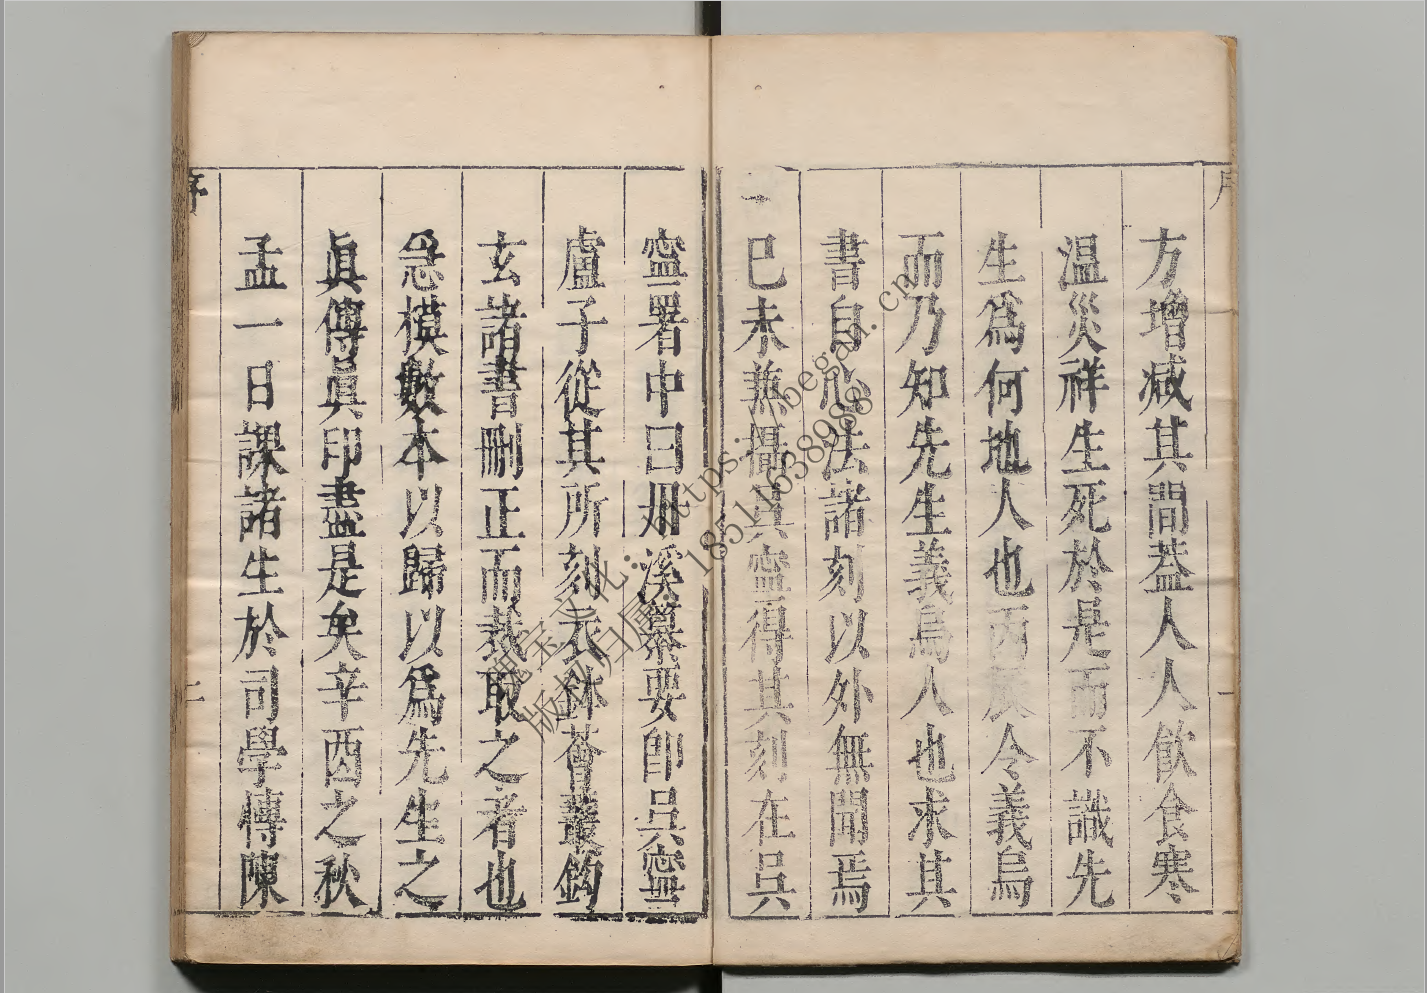 方增減其間葢人人飮食寒
温災祥生死於是而不識先
生爲何地人也丙辰令義烏
而乃知先生義烏人也求其
書自心法諸刻以外無聞焉
巳未兼攝其𥁞得其刻在吳
一
署中曰丹溪纂要卽吳
盧子從其所刻衣鉢薈叢鈎
玄諸書刪正而裁取之者也
急模數本以歸以爲先生之
眞傳眞印盡是矣辛酉之秋
孟一日課諸生於司學傳陳
序
二
https://began.cn
18511638988
版权归属